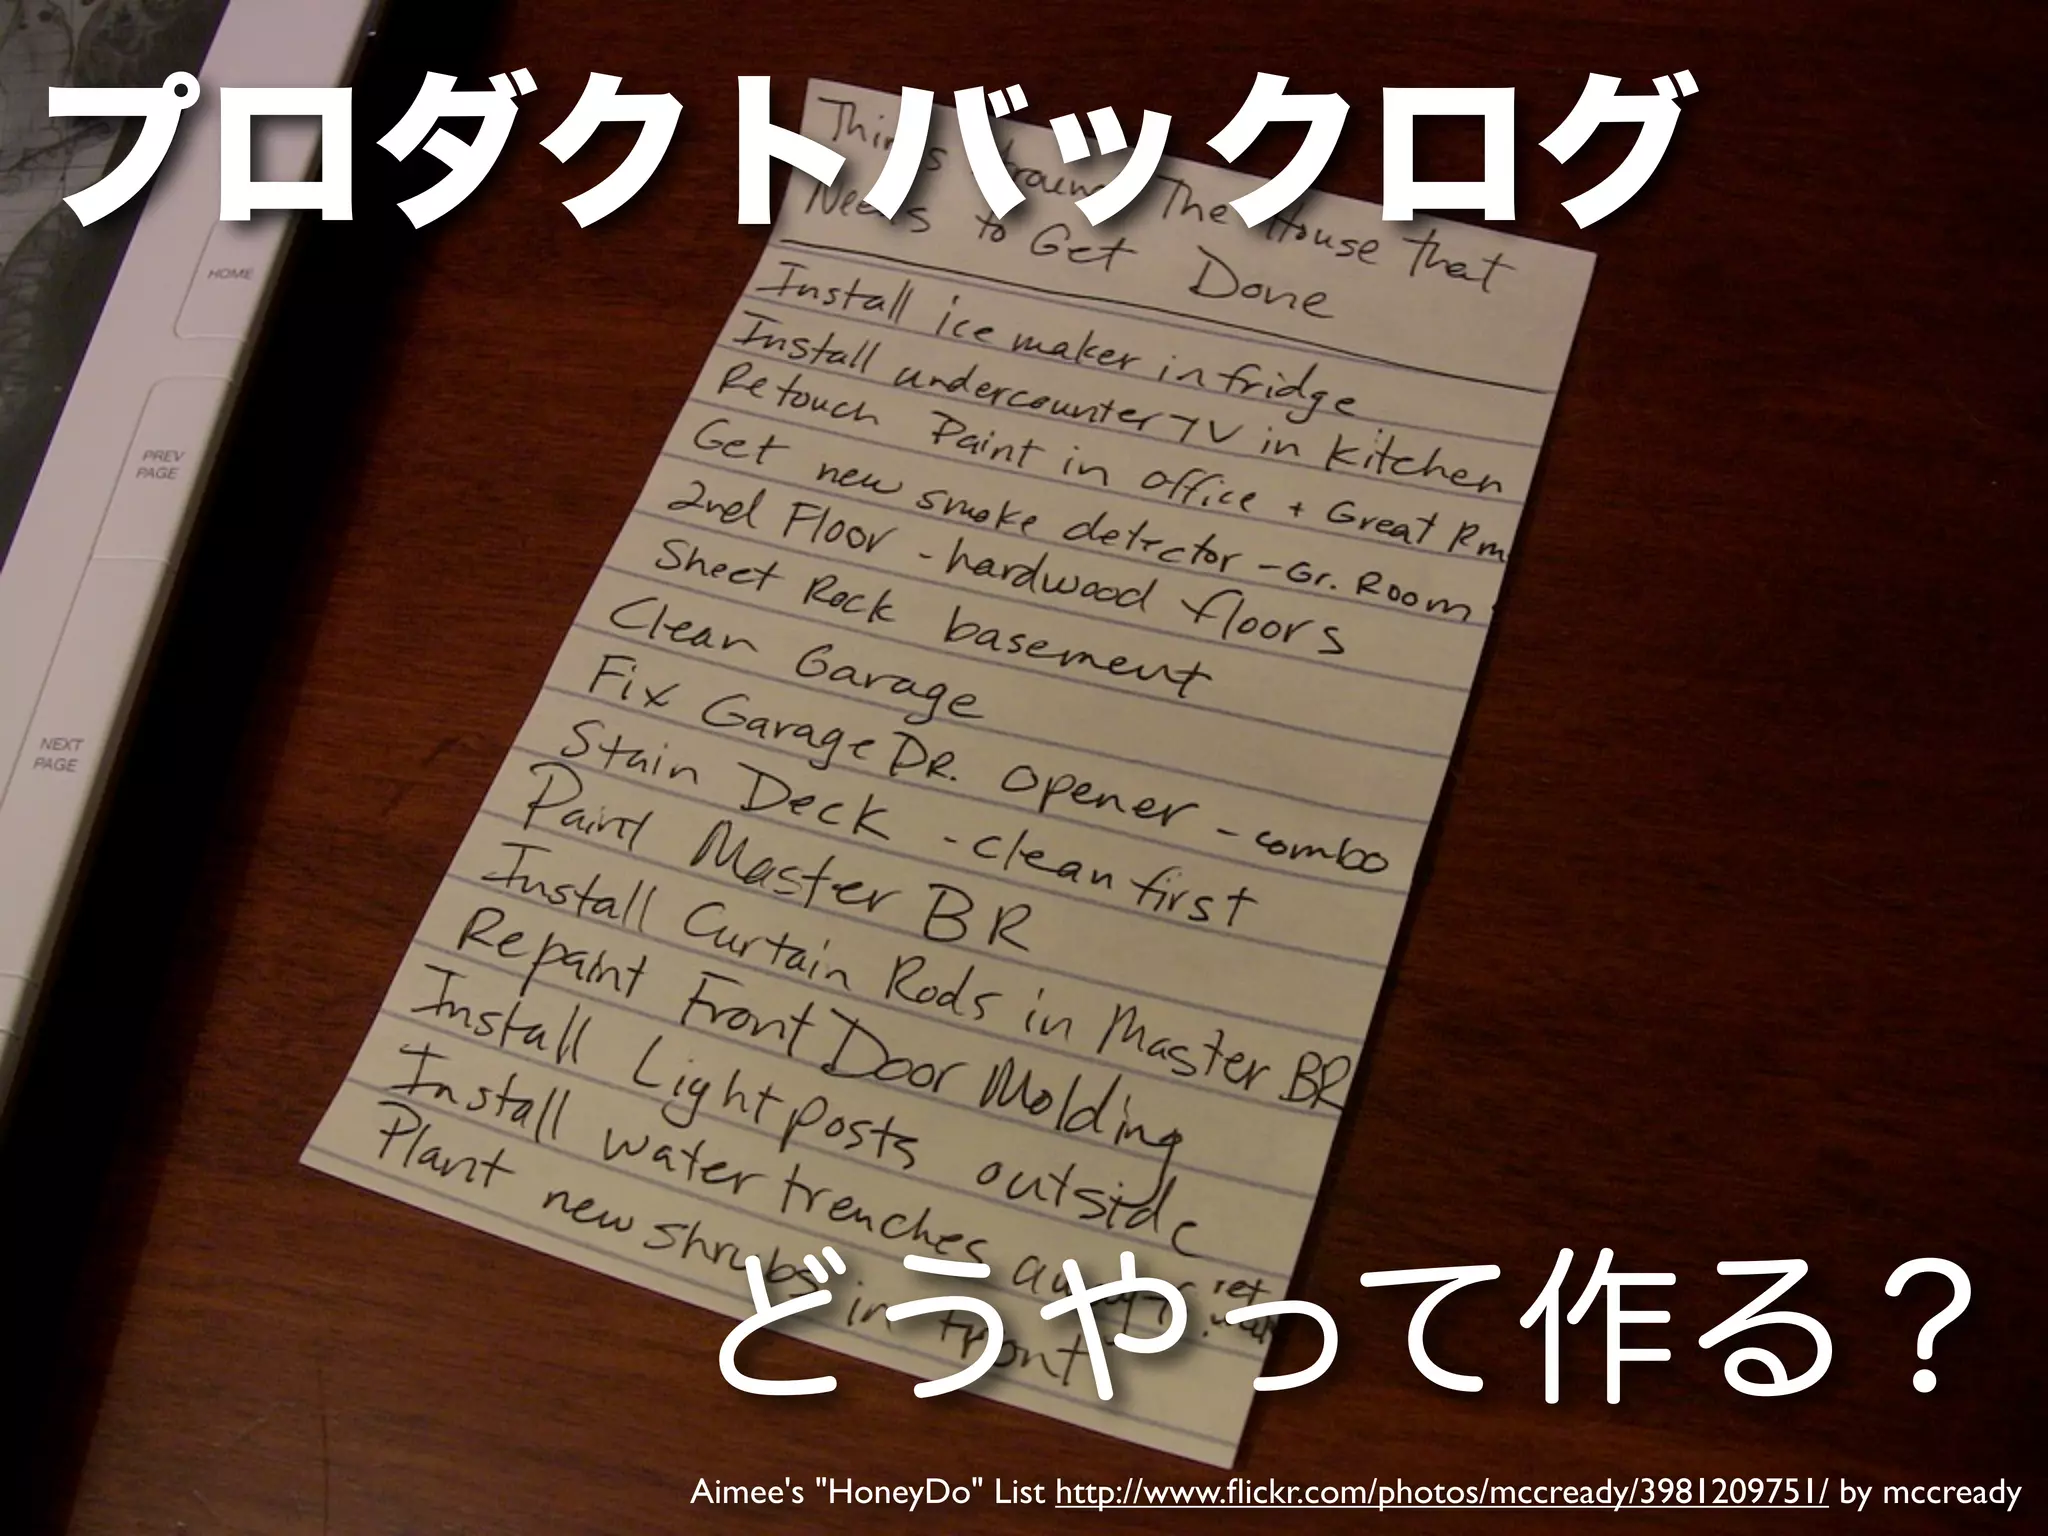 プロダクトバックログ
Things Around The House that
Needs to Get Done
Install ice maker in fridge
Install undercounter TV in Kitchen
Retouch Paint in office + Great Rm
Get new smoke detector - Gr. Room
2nd Floor - hardwood floors
Sheet Rock basement
Clean Garage
Fix Garage DR. opener - combo
Stain Deck - clean first
Paint Master BR
Install Curtain Rods in Master BR
Repaint Front Door Molding
Install Light posts outside
Install water trenches
Plant new shrubs in front
どうやって作る？
HOME
PREV
PAGE
NEXT
PAGE
Aimee's "HoneyDo" List http://www.flickr.com/photos/mccready/3981209751/ by mccready